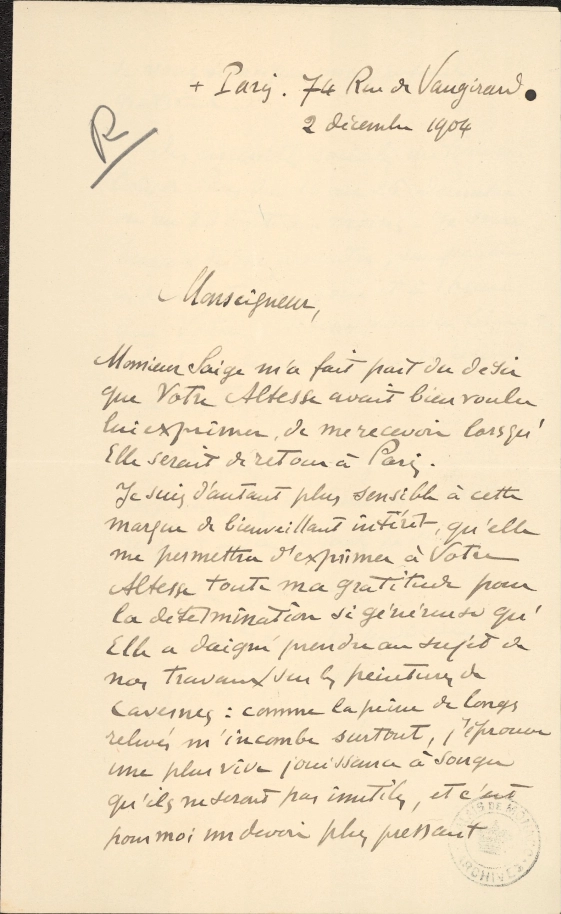 + Paris. 74 Rue de Vaugirard.
2 décembre 1904
R
Monseigneur,
Monsieur Saige m'a fait part du désir
que Votre Altesse avait bien voulu
lui exprimer, de me recevoir lorsqu'
Elle serait de retour à Paris.
Je suis d'autant plus sensible à cette
marque de bienveillant intérêt, qu'elle
me permettra d'exprimer à Votre
Altesse toute ma gratitude pour
la détermination si généreuse qu'
Elle a daigné prendre au sujet de
nos travaux sur les peintures de
cavernes : comme la peine de longs
relevés m'incombe surtout, j'éprouve
une plus vive jouissance à songer
qu'ils ne seront pas inutiles, et c'est
pour moi un devoir plus pressant
ARCHIVES